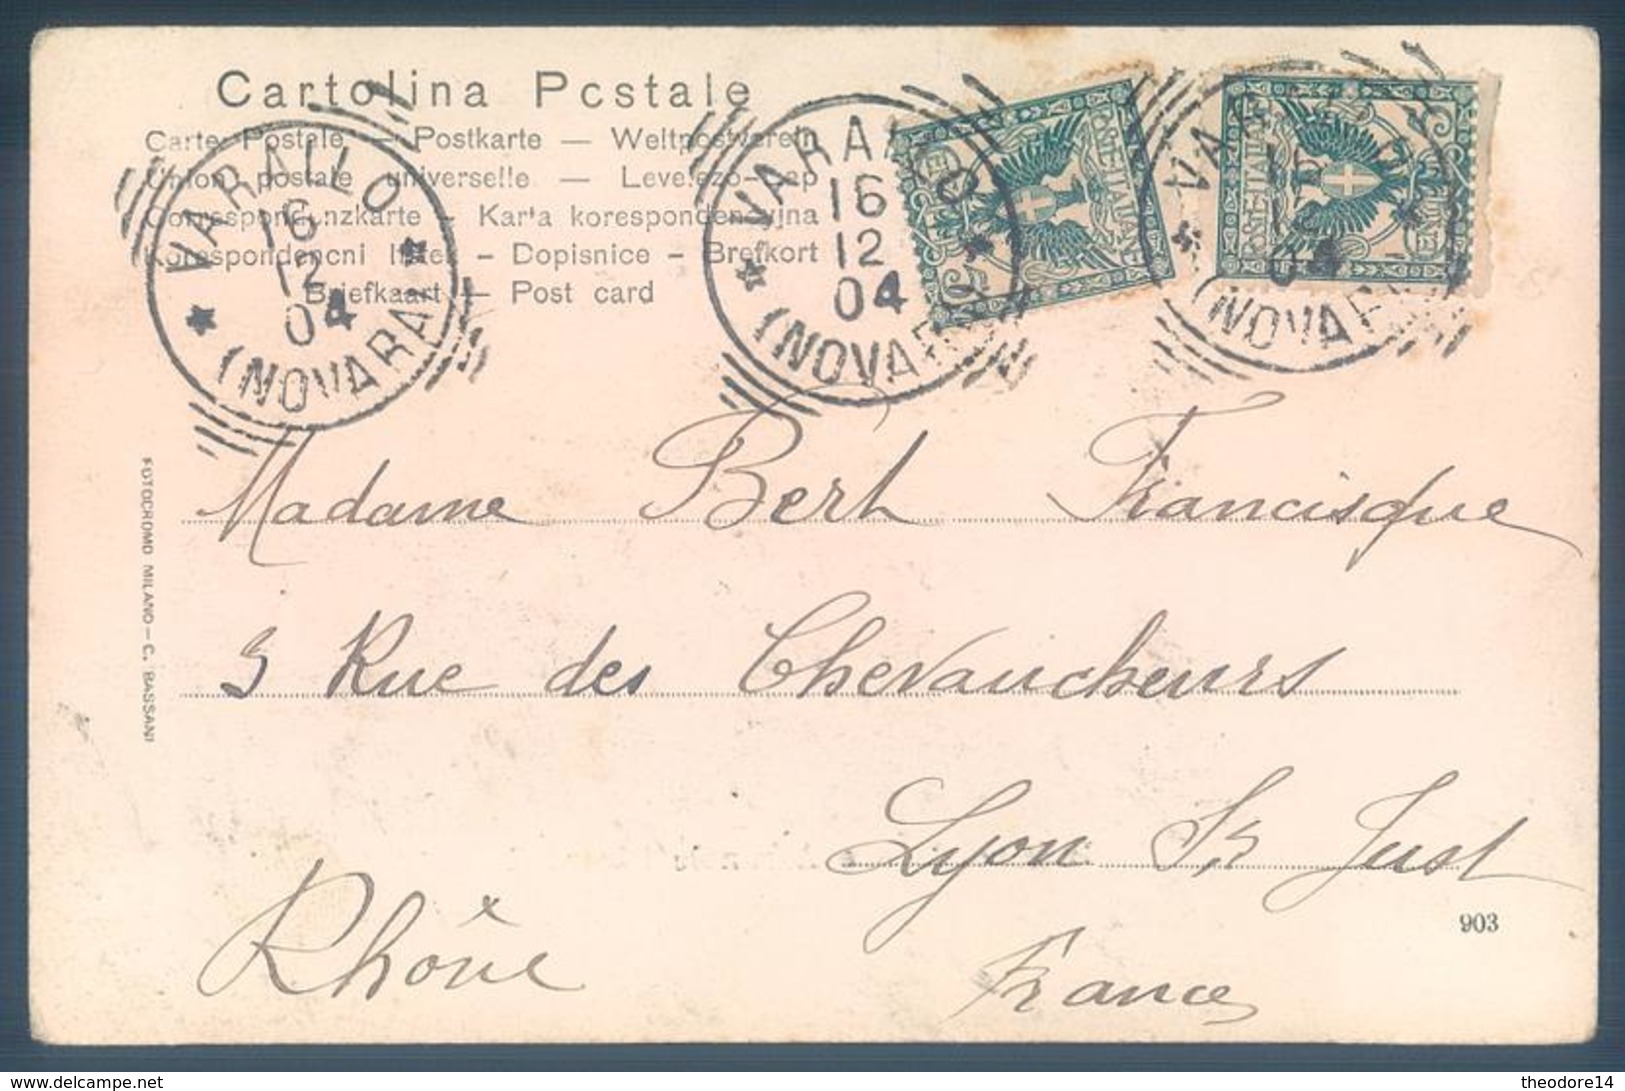 Cartolina Postale
Carte Postale — Postkarte — Weltpostverein
Union postale universelle — Levelezo-Lap
Correspondenzkarte - Karta korespondencyjna
Korespondencni listek - Dopisnice - Brefkort
Briefkaart — Post card
VARALLO
16
12
04
(NOVARA)
VARALLO
16
12
04
(NOVARA)
POSTE ITALIANE
VARALLO
16
12
04
(NOVARA)
POSTE ITALIANE
Madame Berh Francisque
5 Rue des Chevaucheurs
Lyon St Just
Rhône
France
903
FOTOCROMO MILANO — C. BASSANI
theodore14
www.delcampe.net